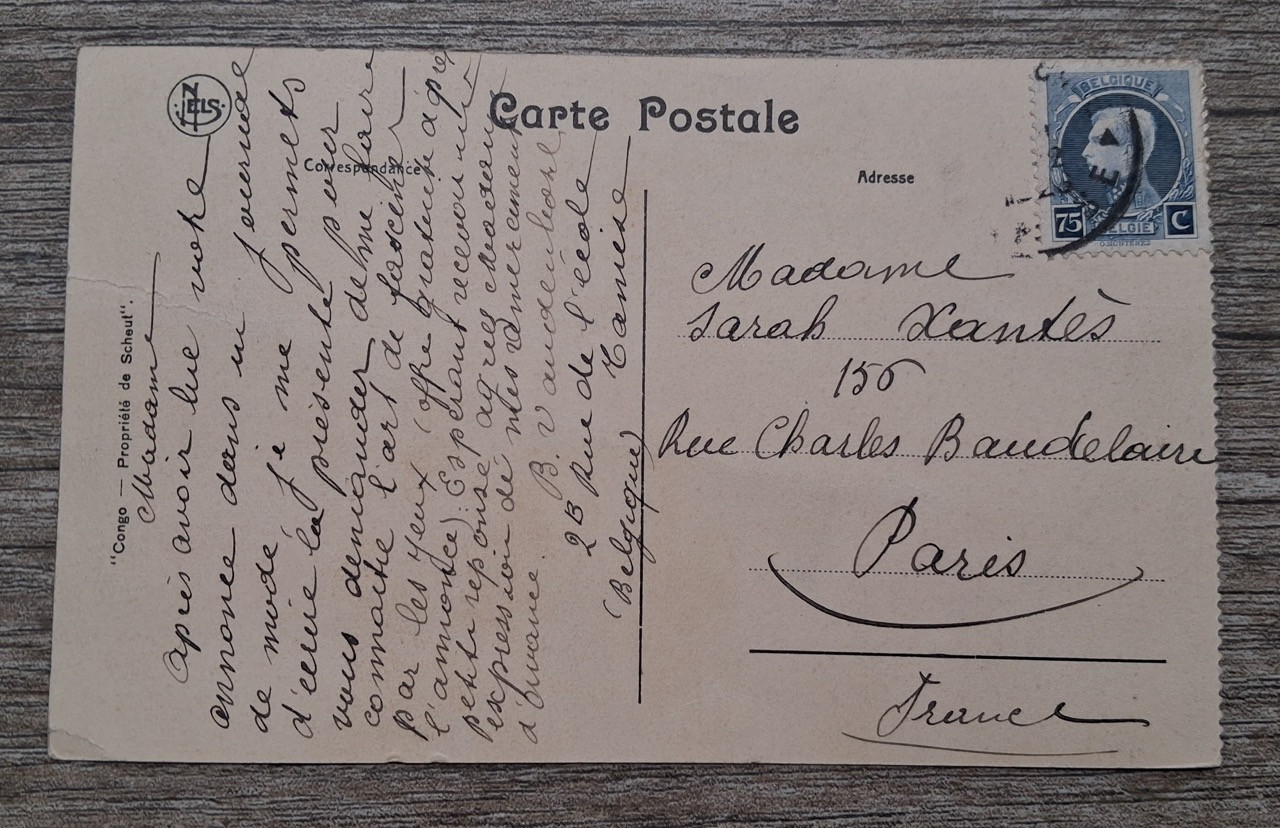 NELS
Carte Postale
Correspondance
Adresse
"Congo — Propriété de Scheut".
BELGIQUE
75 C
BELGIË
Madame
Après avoir lue votre
annonce dans un journal
de mode, je me permets
d'ecrire la présente pour
vous demander de me faire
connaitre l'art de fasciner
par les yeux (offre gratuite après
l'annonce) Esperant recevoir une
petite reponse agrées Madame
l'expression de mes
d'avance. B. Vandenbosch
2B Rue de l'école
Tamise
(Belgique)
Madame
Sarah Xantès
156
Rue Charles Baudelaire
Paris
France